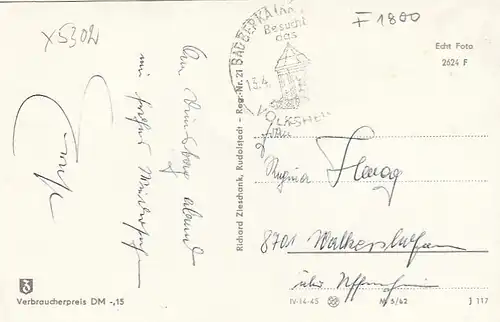 X5302
F 1800
BAD BERKA
Besucht
das
13.4.
VOLKSHE
Echt Foto
2624 F
Am Dienstag abend
Frau
Regina Haag
8701 Walkershofen
über Uffenheim
Richard Zieschank, Rudolstadt - Reg.-Nr. 21
Verbraucherpreis DM -,15
IV-14-45
Nr. 5/62
J 117